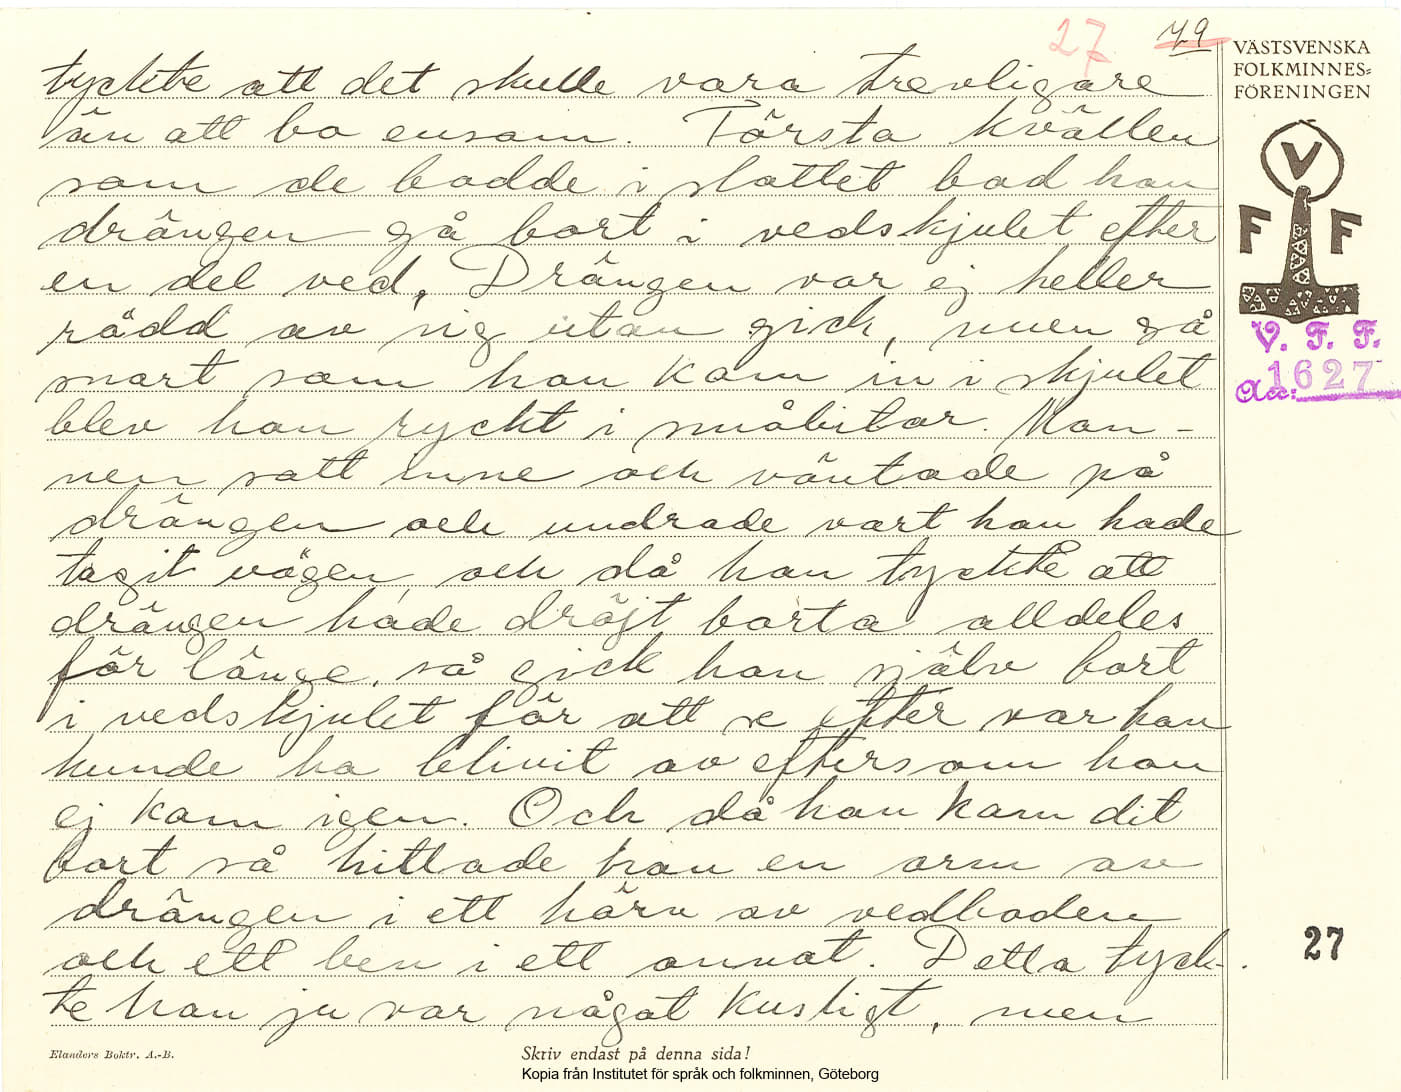 27 79
VÄSTSVENSKA
FOLKMINNES=
FÖRENINGEN
V
F F
V. F. F.
Acc: 1627
tyckte att det skulle vara trevligare
än att bo ensam. Första kvällen
som de bodde i slottet bad han
drängen gå bort i vedskjulet efter
en del ved. Drängen var ej heller
rädd av sig utan gick, men så
snart som han kom in i skjulet
blev han ryckt i småbitar. Man-
nen satt inne och väntade på
drängen och undrade vart han hade
tagit vägen, och då han tyckte att
drängen hade dröjt borta alldeles
för länge, så gick han själv bort
i vedskjulet för att se efter var han
kunde ha blivit av eftersom han
ej kom igen. Och då han kom dit
bort så hittade han en arm av
drängen i ett hörn av vedboden
och ett ben i ett annat. Detta tyck-
te han ju var något kusligt, men
27
Elanders Boktr. A.-B.
Skriv endast på denna sida!
Kopia från Institutet för språk och folkminnen, Göteborg